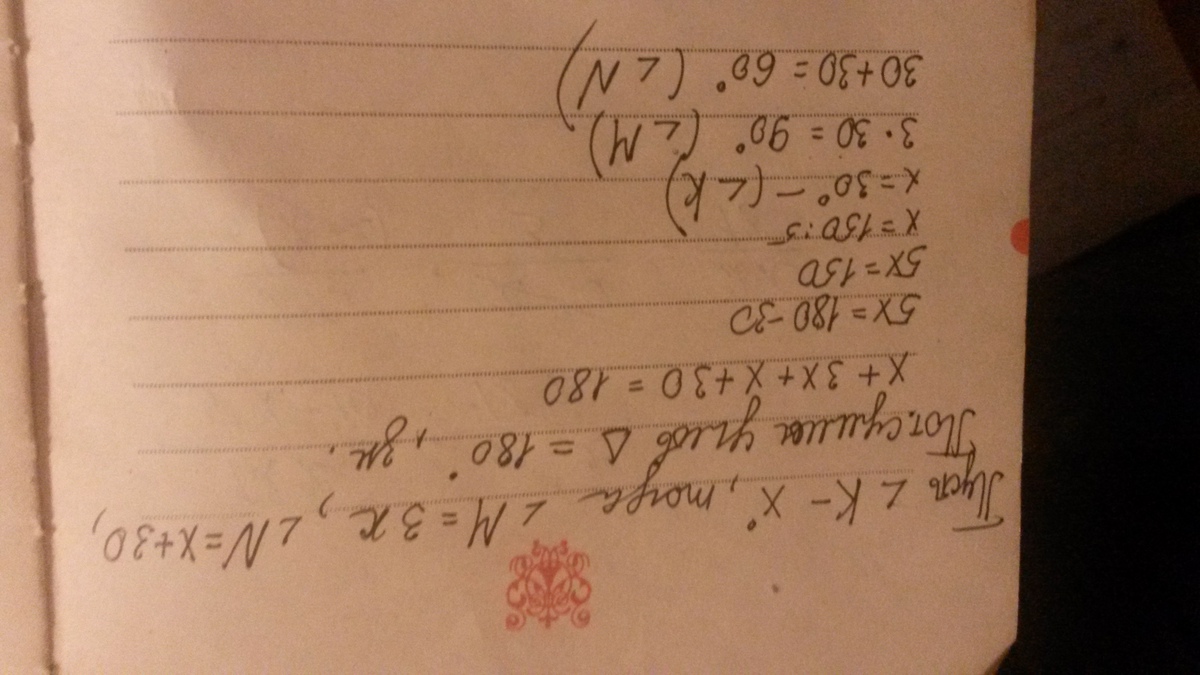 Пусть ∠K - x°, тогда ∠M = 3x, ∠N = x+30,
Т.к. сумма углов Δ = 180°, зн.
x + 3x + x + 30 = 180
5x = 180-30
5x = 150
x = 150:5
x = 30° - (∠K)
3·30 = 90° (∠M)
30+30 = 60° (∠N)